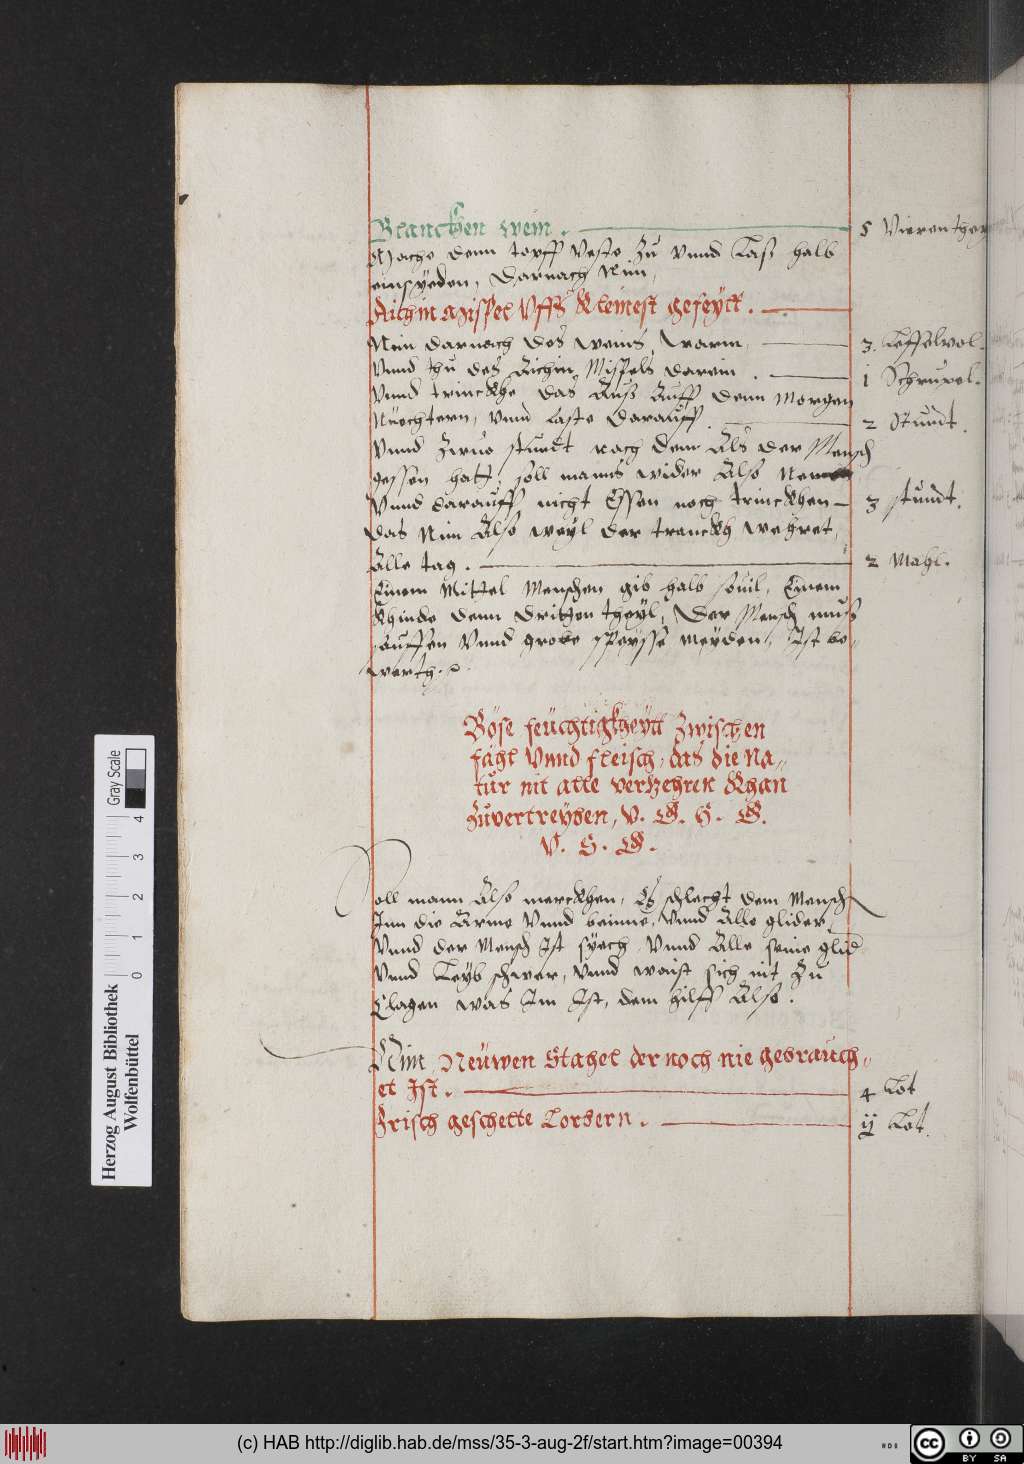 Blanckhen wein. 5 Vierentheyl
Mache denn topff veste zu vnnd Lass halb
einsyeden, Darnach Nim,
Aichin Mispel vffs kleinest geseytt.
Nim darnach des weins, warm, 3. Leffelvol.
Vnnd thu des Aichin Mispels darein. 1 Schrupel.
Vnnd trinckhe das Auss Auff denn Morgen
Nüechtern, vnnd faste darauff. 2 Stundt.
Vnnd zwuo stundt nach dem Als der Mensch
gessen hatt, soll manns wider Also
Vnnd darauff nicht Essen noch trinckhen 3 stundt.
das Nim Also weyl der tranckh wehret,
Alle tag. 2 Mahl.
Einem Mittel Menschen gib halb souil, Einem
Khinde denn dritten theyl, Der Mensch muss
sauffen Vnnd grobe speysse meyden, Ist be-
werth.
Böse feüchtigkheytt zwischen
fähl Vnnd fleisch, das die Na-
tur nit alle verzehren Khan
Zuvertreyben, V. G. H. G.
V. S. G.
Soll mann Also merckhen, Es schlecht dem Mensch
Inn die Arme Vnnd beinne, Vnnd Alle glider,
Vnnd der Mensch Ist syech Vnnd Alle seine glid
Vnnd Leyb schwer, Vnnd waist sich nit zu
Clagen was Im Ist, dem hilff Also.
Nim Neuwen Stahel der noch nie gebrauch-
et Ist. 4 Lot
Frisch geschelte Lorbern. ij Lot.
Herzog August Bibliothek
Wolfenbüttel
0 1 2 3 4
Gray Scale
(c) HAB http://diglib.hab.de/mss/35-3-aug-2f/start.htm?image=00394
cc BY SA